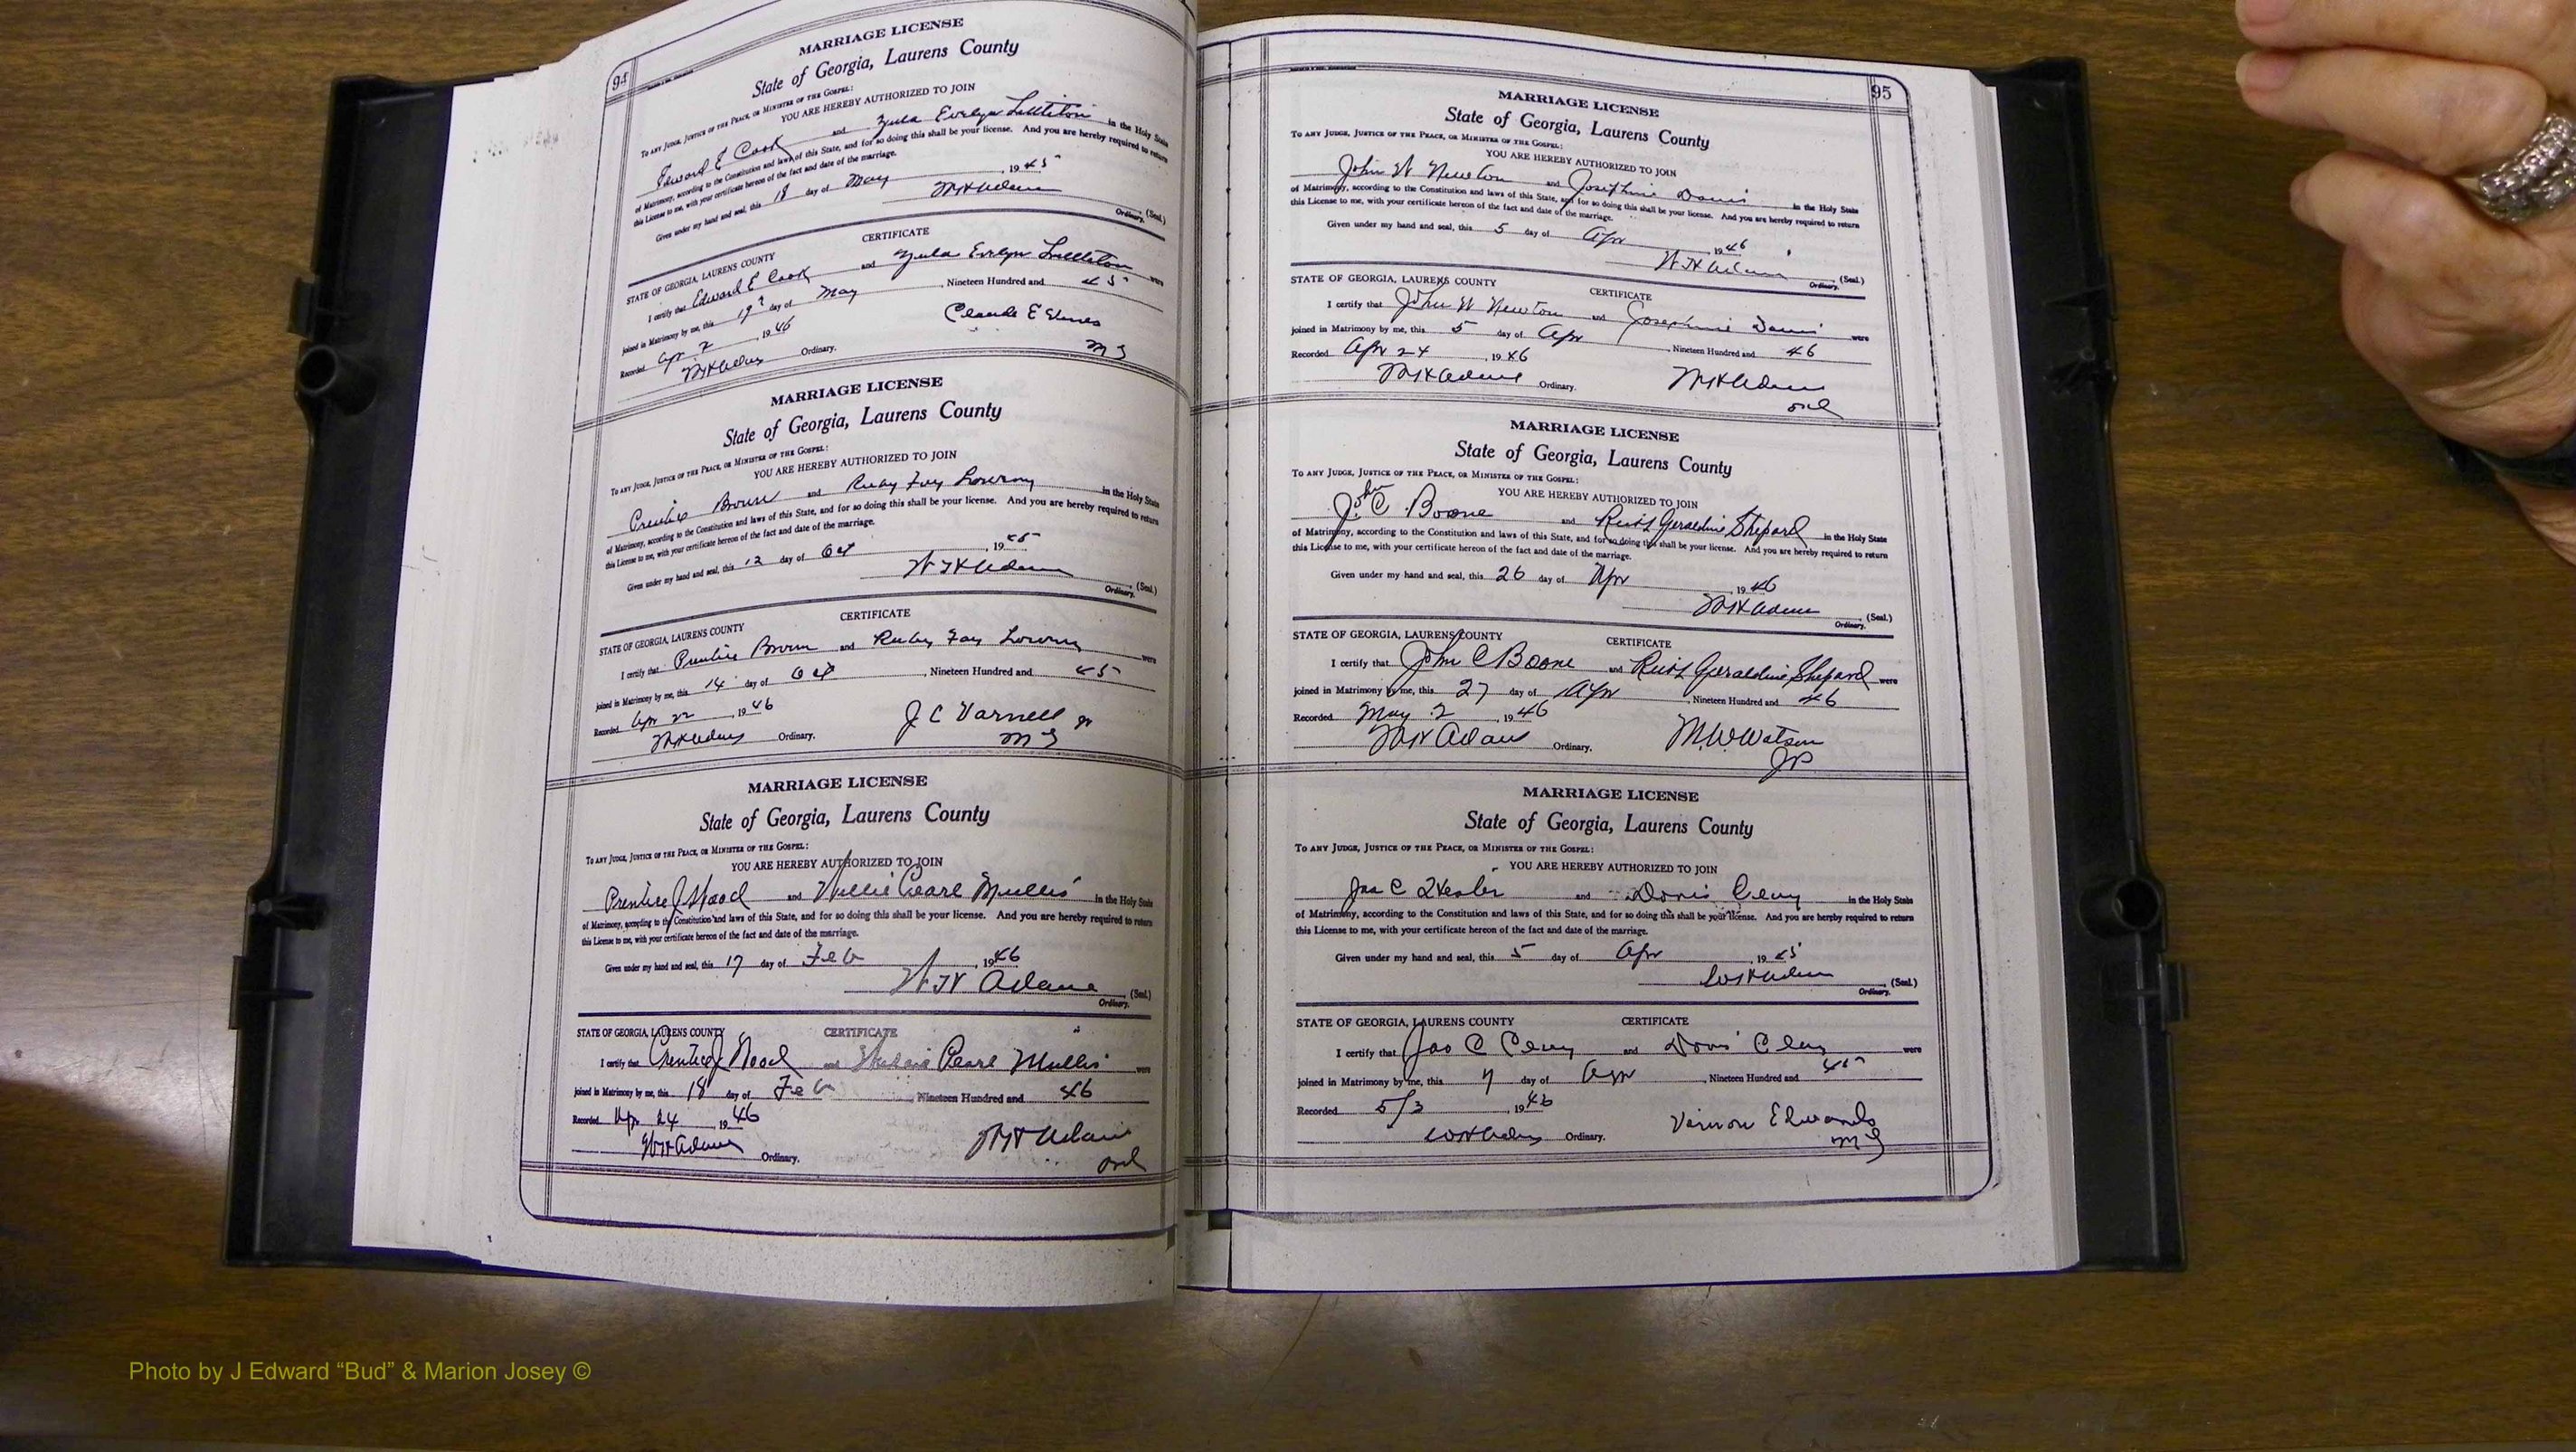 94
MARRIAGE LICENSE
State of Georgia, Laurens County
TO ANY JUDGE, JUSTICE OF THE PEACE, OR MINISTER OF THE GOSPEL:
YOU ARE HEREBY AUTHORIZED TO JOIN
Edward E Cook and Zula Evelyn Littleton in the Holy State
of Matrimony, according to the Constitution and laws of this State, and for so doing this shall be your license. And you are hereby required to return
this License to me, with your certificate hereon of the fact and date of the marriage.
Given under my hand and seal, this 18 day of May, 1945
WH Adams (Seal.)
Ordinary.
CERTIFICATE
STATE OF GEORGIA, LAURENS COUNTY
I certify that Edward E Cook and Zula Evelyn Littleton were
joined in Matrimony by me, this 19 day of May, Nineteen Hundred and 45
Recorded Apr 2, 1946
Claude E
WH Adams Ordinary.
MG
MARRIAGE LICENSE
State of Georgia, Laurens County
TO ANY JUDGE, JUSTICE OF THE PEACE, OR MINISTER OF THE GOSPEL:
YOU ARE HEREBY AUTHORIZED TO JOIN
Prentice and Ruby Fay Lowery in the Holy State
of Matrimony, according to the Constitution and laws of this State, and for so doing this shall be your license. And you are hereby required to return
this License to me, with your certificate hereon of the fact and date of the marriage.
Given under my hand and seal, this 12 day of Oct, 1945
WH Adams (Seal.)
Ordinary.
CERTIFICATE
STATE OF GEORGIA, LAURENS COUNTY
I certify that Prentice and Ruby Fay Lowery were
joined in Matrimony by me, this 14 day of Oct, Nineteen Hundred and 45
Recorded Apr 22, 1946
J C Varnell Jr
WH Adams Ordinary.
MG
MARRIAGE LICENSE
State of Georgia, Laurens County
TO ANY JUDGE, JUSTICE OF THE PEACE, OR MINISTER OF THE GOSPEL:
YOU ARE HEREBY AUTHORIZED TO JOIN
Prentice J Hood and Willie Pearl Mullis in the Holy State
of Matrimony, according to the Constitution and laws of this State, and for so doing this shall be your license. And you are hereby required to return
this License to me, with your certificate hereon of the fact and date of the marriage.
Given under my hand and seal, this 17 day of Feb, 1946
WH Adams (Seal.)
Ordinary.
STATE OF GEORGIA, LAURENS COUNTY CERTIFICATE
I certify that Prentice J Hood and Willie Pearl Mullis were
joined in Matrimony by me, this 18 day of Feb, Nineteen Hundred and 46
Recorded Apr 24, 1946
WH Adams Ordinary.
WH Adams
Ord
95
MARRIAGE LICENSE
State of Georgia, Laurens County
TO ANY JUDGE, JUSTICE OF THE PEACE, OR MINISTER OF THE GOSPEL:
YOU ARE HEREBY AUTHORIZED TO JOIN
John W Newton and Josephine Davis in the Holy State
of Matrimony, according to the Constitution and laws of this State, and for so doing this shall be your license. And you are hereby required to return
this License to me, with your certificate hereon of the fact and date of the marriage.
Given under my hand and seal, this 5 day of Apr, 1946
WH Adams (Seal.)
Ordinary.
STATE OF GEORGIA, LAURENS COUNTY CERTIFICATE
I certify that John W Newton and Josephine Davis were
joined in Matrimony by me, this 5 day of Apr, Nineteen Hundred and 46
Recorded Apr 24, 1946
WH Adams Ordinary.
WH Adams
Ord
MARRIAGE LICENSE
State of Georgia, Laurens County
TO ANY JUDGE, JUSTICE OF THE PEACE, OR MINISTER OF THE GOSPEL:
YOU ARE HEREBY AUTHORIZED TO JOIN
John C Boone and Ruth Geraldine Shepard in the Holy State
of Matrimony, according to the Constitution and laws of this State, and for so doing this shall be your license. And you are hereby required to return
this License to me, with your certificate hereon of the fact and date of the marriage.
Given under my hand and seal, this 26 day of Apr, 1946
WH Adams (Seal.)
Ordinary.
STATE OF GEORGIA, LAURENS COUNTY CERTIFICATE
I certify that John C Boone and Ruth Geraldine Shepard were
joined in Matrimony by me, this 27 day of Apr, Nineteen Hundred and 46
Recorded May 2, 1946
WH Adams Ordinary.
M. W Watson
JP
MARRIAGE LICENSE
State of Georgia, Laurens County
TO ANY JUDGE, JUSTICE OF THE PEACE, OR MINISTER OF THE GOSPEL:
YOU ARE HEREBY AUTHORIZED TO JOIN
Jas C and Doris in the Holy State
of Matrimony, according to the Constitution and laws of this State, and for so doing this shall be your license. And you are hereby required to return
this License to me, with your certificate hereon of the fact and date of the marriage.
Given under my hand and seal, this 5 day of Apr, 1945
WH Adams (Seal.)
Ordinary.
STATE OF GEORGIA, LAURENS COUNTY CERTIFICATE
I certify that Jas C and Doris were
joined in Matrimony by me, this 7 day of Apr, Nineteen Hundred and 45
Recorded 5/3, 1946
WH Adams Ordinary.
Vernon Edwards
MG
Photo by J Edward “Bud” & Marion Josey ©